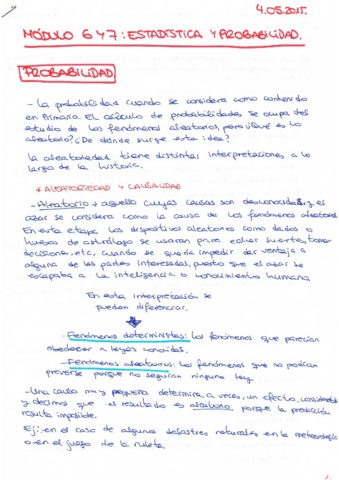 4.05.2015.
MÓDULO 6 Y 7: ESTADÍSTICA Y PROBABILIDAD.
PROBABILIDAD
- La probabilidad cuando se considera como contenido
en Primaria. El cálculo de probabilidades se ocupa del
estudio de los fenómenos aleatorios, pero ¿qué es lo
aleatorio? ¿De dónde surge esta idea?
La aleatoriedad tiene distintas interpretaciones a lo
largo de la historia.
* ALEATORIEDAD Y CAUSALIDAD
- Aleatorio → aquello cuyas causas son desconocidas y el
azar se considera como la causa de los fenómenos aleatorios
En esta etapa los dispositivos aleatorios como dados o
huesos de astrágalo se usaron para echar suertes, tomar
decisiones, etc, cuando se quería impedir dar ventaja a
alguna de las partes interesadas, puesto que el azar se
escapaba a la inteligencia o conocimiento humano
En esta interpretación se
pueden diferenciar.
- Fenómenos deterministas: los fenómenos que parecían
obedecer a leyes conocidas.
- Fenómenos aleatorios: los fenómenos que no podían
preverse porque no seguían ninguna ley.
- Una causa muy pequeña determina, a veces, un efecto considerable
y decimos que el resultado es aleatorio porque la predicción
resulta imposible.
Ej: en el caso de algunos desastres naturales en la meteorología
o en el juego de la ruleta.
1.